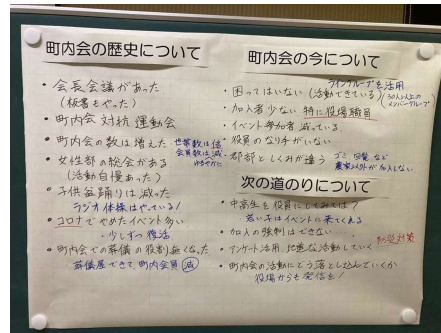 町内会の歴史について
・会長会議があった
(板書もやった)
・町内会対抗運動会
・町内会の数は増えた
世帯数は倍
会員数は減
ゆるやかに
・女性部の総会がある
(活動自慢あった)
・子供盆踊りは減った
ラジオ体操はやっている!
・コロナでやめたイベント多い
・少しずつ復活
・町内会での葬儀の役割無くなった
葬儀屋できて町内会員減
町内会の今について
ライングループを活用
・困ってはいない(活動できている)
(30人以上のメンバーグループ)
・加入者少ない 特に役場職員
・イベント参加者減っている
・役員のなり手がいない
・都部としくみが違う
ゴミ回覧など
農家以外が加入しない
次の道のりについて
・中高生を役員にしてみては?
若い子はイベントに来てくれる
・加入の強制はできない・・・
防災対策
・アンケート活用、地道な活動していく
・町内会の活動にどう落とし込んでいくか
役場からも発信を!